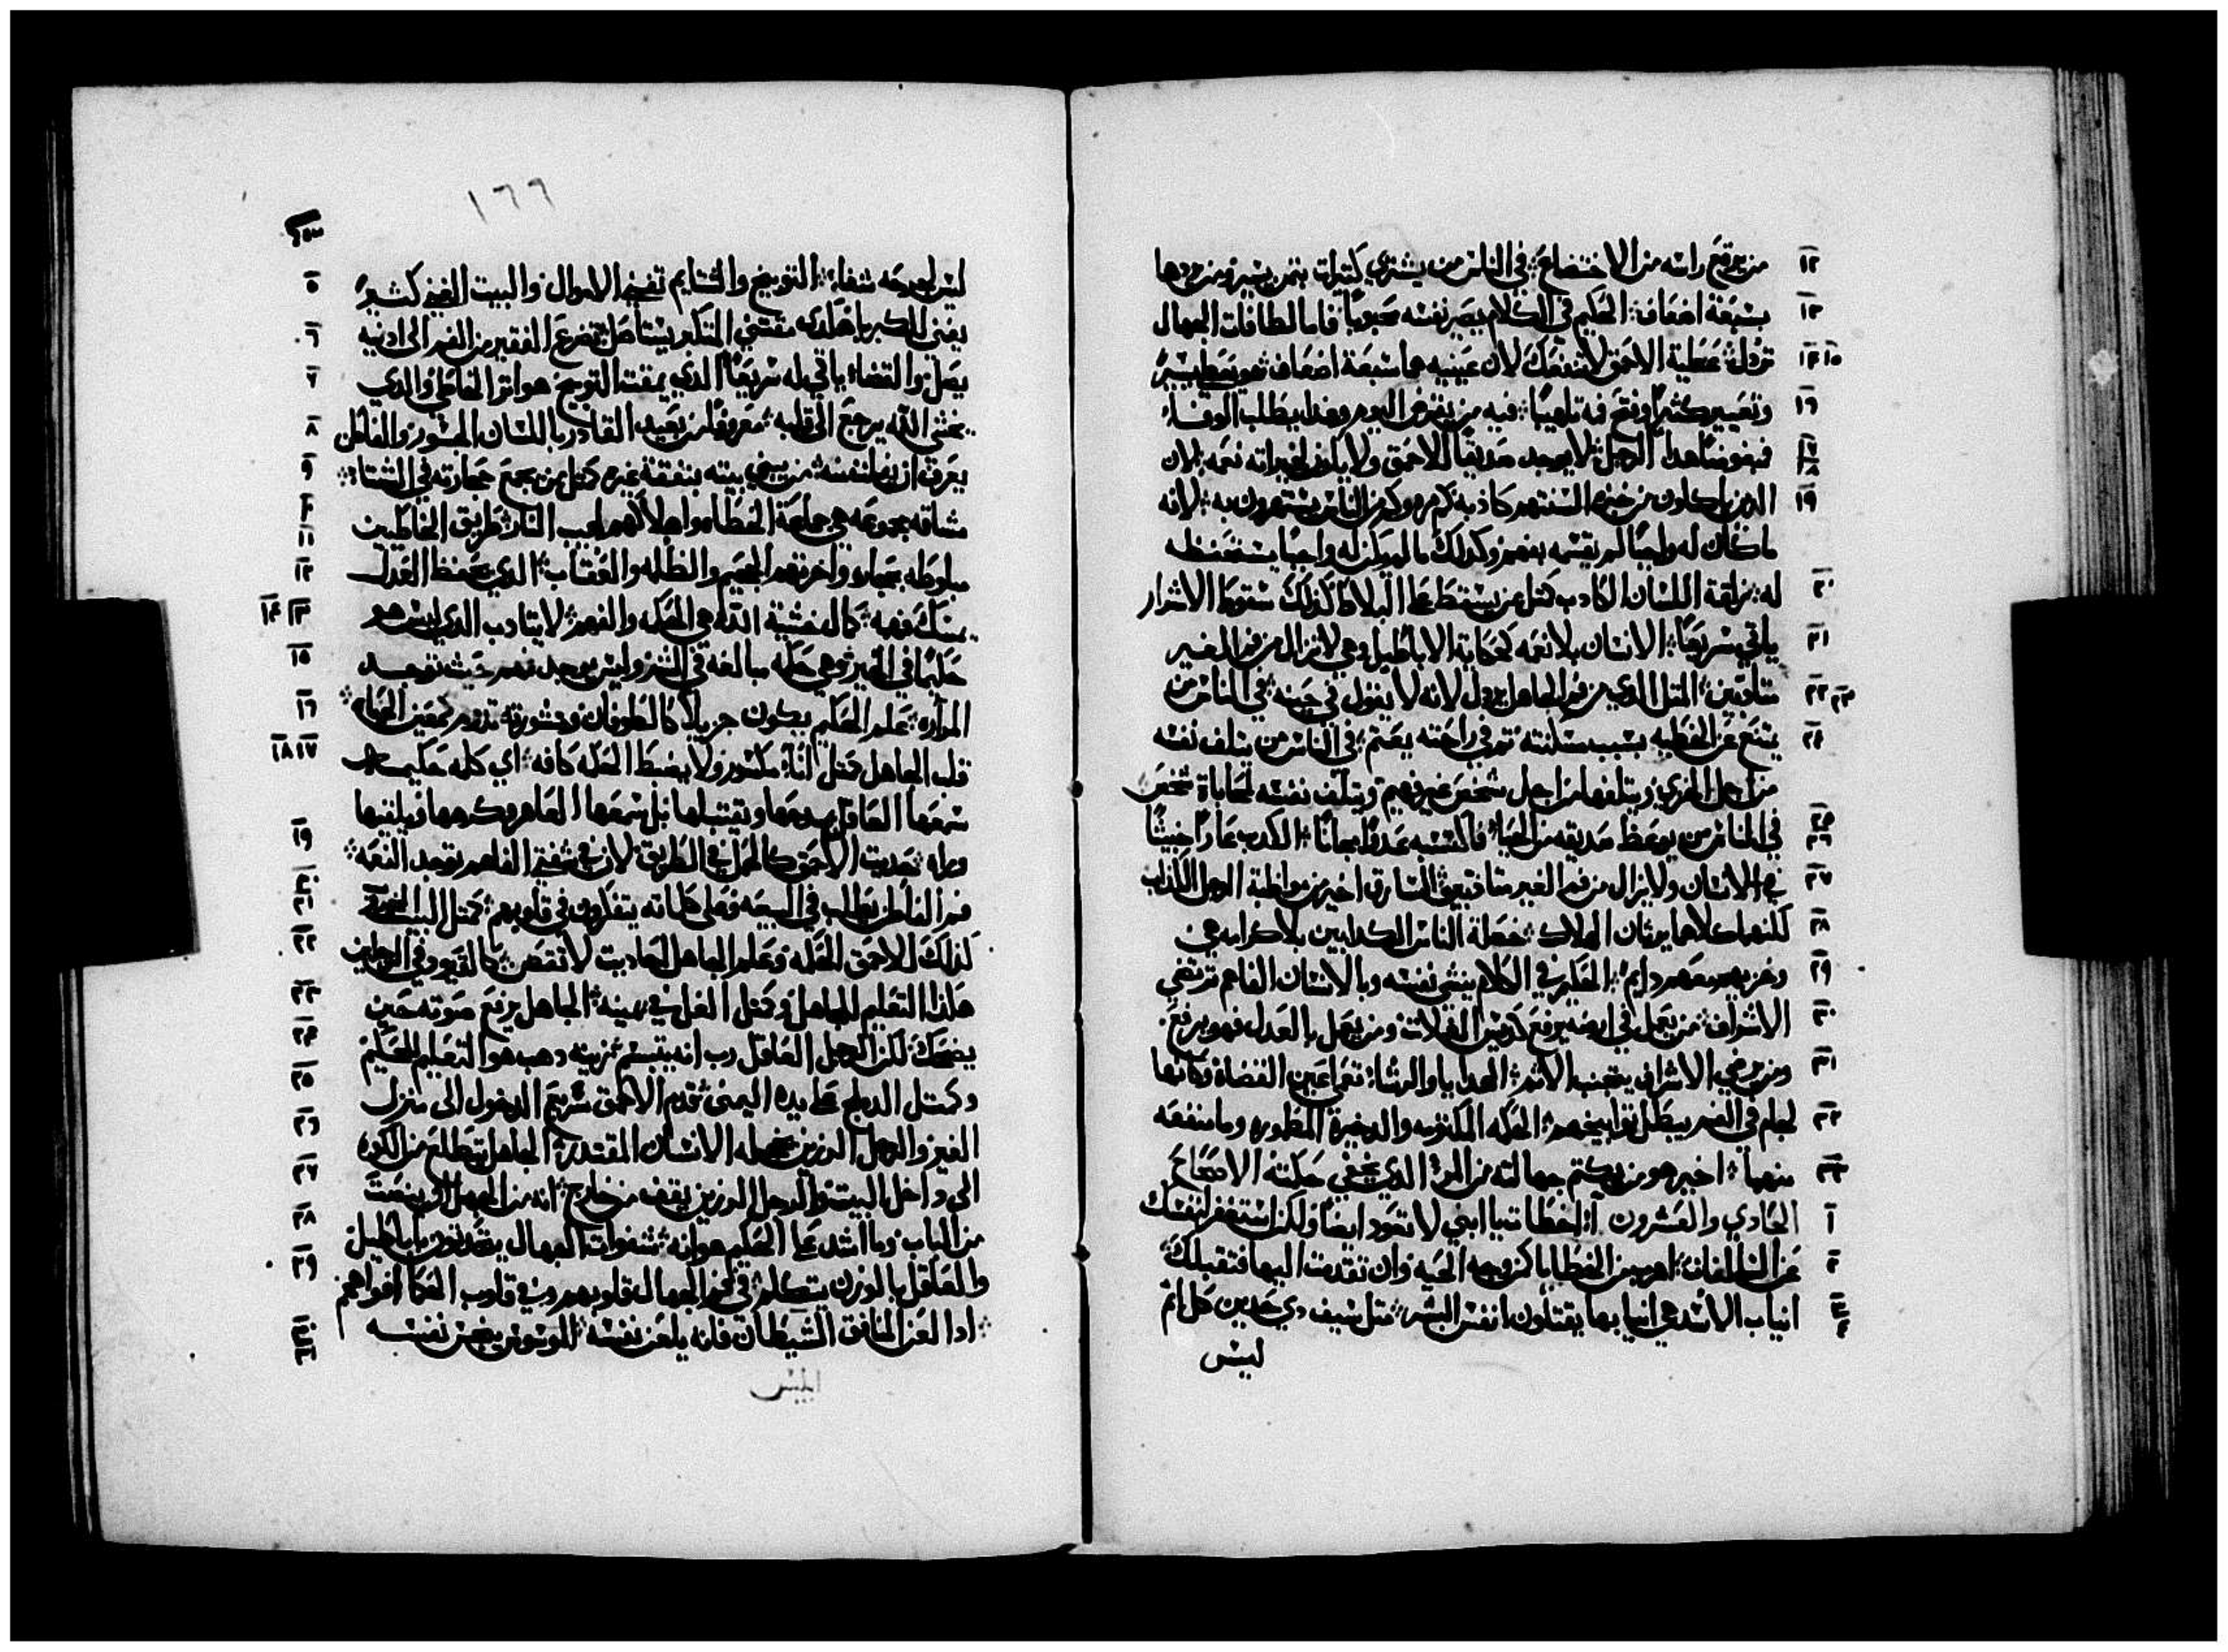 من يرفع راسه من الاختضاع ۞ في الناس من يشتري كثيرات بثمن يسير ومن يردها ١٢
بسبعة اضعاف ۞ الحكيم في الكلام يصير نفسه محبوبًا فاما لطافات الجهال ١٣
تردل ۞ عطية الاحمق لا تنفعك لان عينيه هما سبعة اضعاف ۞ هو يعطي يسيرًا ١٤ ١٥
وتعيير كثيرًا وفتح فه تلهيبًا ۞ فيه من يقرض اليوم وغدا يطلب الوفاء ١٦
فبغوضًا هدا الرجل ۞ لا يوجد صديقًا للاحمق ولا يكون لخيراته نعمه ۞ لان ١٧ ١٨
الدين ياكلون من خبزه السنتهم كاذبه ۞ كم مره وكم من الناس يستهزون به ۞ لانه ١٩
ما كان له واجبًا لم يقسمه بفهم وكدلك ما لم يكن له واجبًا يستحفظه
له ۞ زلقة اللسان الكادب كمثل من يسقط على البلاط كدلك سقوط الاشرار ٢٠
ياتي سريعًا ۞ الانسان بلا نعمه كحكاية الاباطيل وهي لا تزال من فم الغير ٢١
متادبين ۞ المثل الدي من فم الجاهل يردل لانه لا يقول في حينه ۞ في الناس من ٢٢ ٢٣
يمتنع عن الخطيه بسبب مسكنته ثم في راحته يغتم ۞ في الناس من يتلف نفسه ٢٤
من اجل الخزي ويتلفها من اجل شخص غير فهيم ويتلف نفسه لمحاباة شخص
في الناس من يوعظ صديقه من الحيا فاكتسبه عدوًا مجانًا ۞ الكدب عارًا خبيثًا ٢٥ ٢٦
في الانسان ولا يزال من فم الغير متادبين ۞ السارق اخير من مواظبة الرجل الكذاب ٢٧
كلنهما كلاهما يرثان الهلاك ۞ خصلة الناس الكدابين بلا كرامه هي ٢٨
وخزيهم معهم دايم ۞ الحكيم في الكلام ينشي نفسه وبالانسان الفاهم ترتضي ٢٩
الاشراف ۞ من يعمل في ارضه يرفع كدوس الغلات ومن يعمل بالعدل فهو يرفع ٣٠
ومن يرضي الاشراف يتجنب الاثم ۞ الهدايا والرشاء تعمي اعين القضاه وكانها ٣١
لجام في الفم يبطل توابيخهم ۞ الحكمه المكتومه والدخيرة المطموره وما منفعه ٣٢
منهما ۞ اخير هو من يكتم جهالته من المرء الدي يخفي حكمته الاصحاح ٣٣
الحادي والعشرون اخطات يا ابني لا تعود ايضًا ولكن استغفر لنفسك ١
عن السالفات ۞ اهرب من الخطايا كمن وجه الحيه وان تقدمت اليها فتقبلك ٢
انياب الاسد هي انيابها يقتلون انفس البشر ۞ مثل سيف دي حدين كل اثم ٣ ٤
ليس
١٦٦
ليس لجرحه شفاء ۞ التوبيخ والشتايم تفني الاموال والبيت الغني كثيرًا ٥
يفنى بالكبريا هكدى مقتني المتكبر يستاصل ۞ تضرع الفقير من الفم الى ادنيه ٦
يصل والقضاء ياتي له سريعًا ۞ الدي يمقت التوبيخ هو اثر الخاطي والدي ٧
يخشى الله يرجع الى قلبه ۞ معروفًا من بعيد القادر باللسان الجسور والعاقل ٨
يعرف ان يزل نفسه ۞ من يبني بيته بنفقة غيره كمثل من يجمع حجارته في الشتاء ۞ ٩
مشاقه مجموعه هي جماعة الخطاه واهلاكهم لهيب النار ۞ طريق الخاطيين ١٠
مبلوطه بحجاره واخرتهم الجحيم والظلمه والعقاب ۞ الدي يحفظ العدل ١١ ١٢
يمسك فهمه ۞ كمال خشية الله هي الحكمه والفهم ۞ لا يتادب الدي ليس هو ١٣ ١٤
حكيمًا في الخير ۞ وهي حكمه مبالغه في الشر وليس يوجد فهم حيث توجد ١٥
المراره ۞ علم الحكيم يكون جزيلًا كالطوفان ومشورته تدوم كمعين الحياه ۞ ١٦
قلب الجاهل كمثل انًاء مكسور ولا يضبط الحكمه كافه ۞ اي كلمه حكيمه ١٧ ١٨
سمعها العاقل يمدحها ويقتبلها بل سمعها العاهر وكرهها فيلقيها
وراه ۞ حديث الاحمق كالحمل في الطريق لان في شفتي الفاهم توجد النعمه ۞ ١٩
فم العاقل يطلب في البيعه وعلى كلماته يتفكرون في قلوبهم ۞ كمثل البيت الخرب ٢٠ ٢١
كذلك للاحمق الحكمه وعلم الجاهل احاديث لا تفحص ۞ كالقيود في الرجلين ٢٢
هكذا التعليم للجاهل وكمثل الغل في يمينه ۞ الجاهل يرفع صوته حين ٢٣
يضحك لكن الرجل العاقل رب انه يتبسم ۞ زينه دهب هو التعليم للحكيم ٢٤
وكمثل الدملج على يده اليمنى ۞ قدم الاحمق سريع الدخول الى منزل ٢٥
الغير والرجل الرزين يخجله الانسان المقتدر ۞ الجاهل يتطلع من الكوه ٢٦
الى داخل البيت والرجل الرزين يقف من خارج ۞ انه من الجهل ان ينصت ٢٧
من الباب وما اشد على الحكيم هوانه ۞ شفوات الجهال يتحدثون باباطيل ٢٨
والعاقل بالوزن يتكلم ۞ في فم الجهال قلوبهم وفي قلوب الحكماء افواههم ٢٩
۞ ادا لعن المنافق الشيطان فانه يلعن نفسه ۞ الموسوس ينجس نفسه ٣٠ ٣١
ابليس